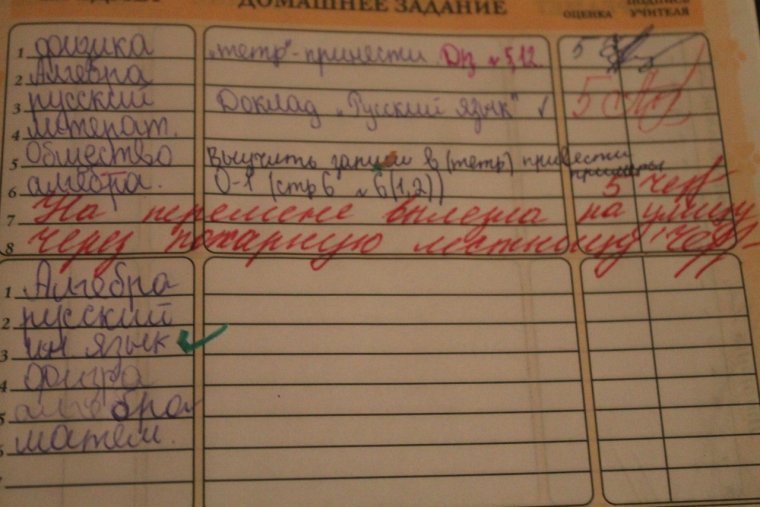 ДОМАШНЕЕ ЗАДАНИЕ
ОЦЕНКА
УЧИТЕЛЯ
1 физика „тетр"-принести. Дз №5,12. 5
2 Алгебра
3 русский Доклад „Русский язык" ✓ 5
4 литерат.
5 Общество Выучить записи в (тетр) привести примеры
6 алгебра. О-1 (стр6 №6(1,2)) 5
7 На перемене вылезла на улицу
8 через пожарную лестницу
1 Алгебра
2 русский
3 ин язык ✓
4 физра
5 алгебра
6 матем.
7